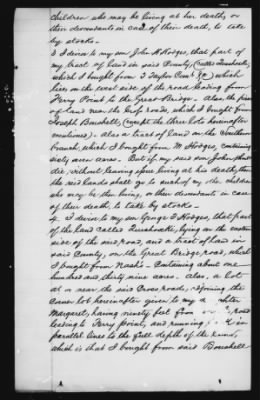 children who may be living at her death, or
their descendants in case of their death, to take
by stocks.
3 I devise to my son John A Hodges, that part of
my tract of land in said County,
which I bought from J Taylor Com'r &c) which
lies on the west side of the road leading from
Ferry Point to the Great Bridge. Also the piece
of land near the road, which I bought from
Joseph Boushell, (except the three lots hereinafter
mentioned). Also a tract of land on the Southern
branch, which I bought from M Hodges, containing
sixty seven acres. But if my said son John should
die, without leaving issue living at his death, then
the said lands shall go to such of my children
who may be then living, or their descendants in case
of their death, to take by stocks.
4. I devise to my son George T Hodges, that part
of the land called lying on the eastern
side of the said road, and a tract of land in
said County, on the Great Bridge road, which
I bought from Nash - Containing about one
hundred and thirty nine acres. Also, a lot
at or near the said Cross roads, adjoining the
corner lot hereinafter given to my
Margaret, having ninety feet from road
leading to Ferry Point, and running in
parallel lines to the full depth of the same,
which is that I bought from said Boushell